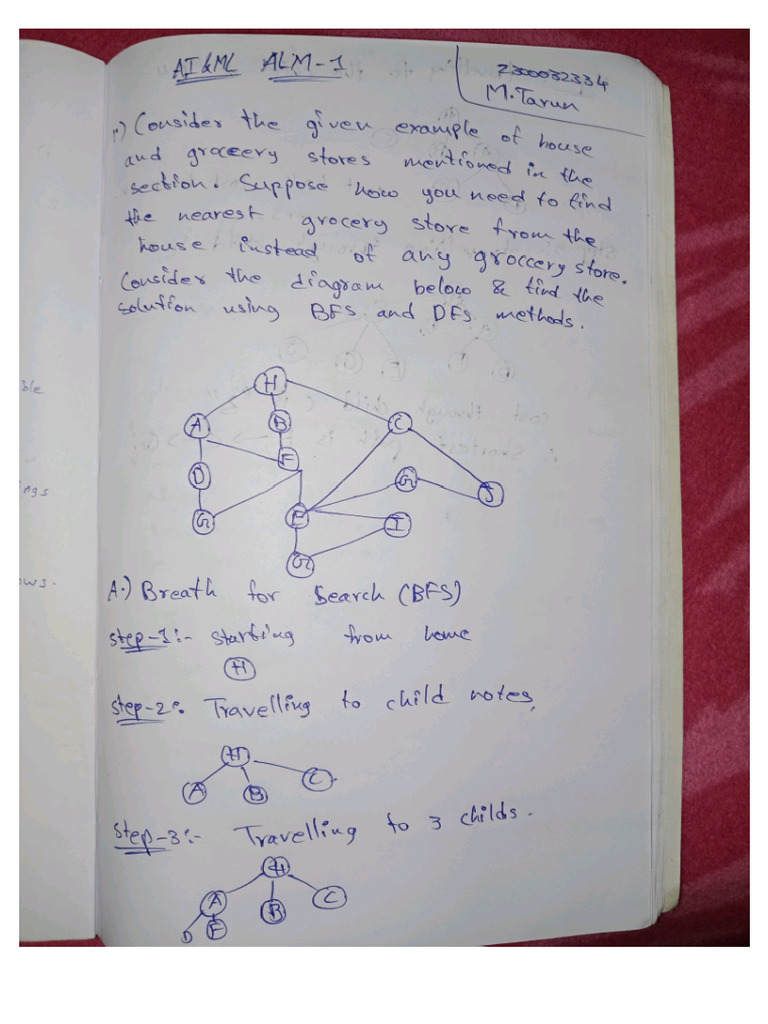 AI&ML ALM-1
2300032334
M.Tarun
1) Consider the given example of house
and groceery stores mentioned in the
section. Suppose how you need to find
the nearest grocery store from the
house instead of any groccery store.
Consider the diagram below & find the
solution using BFS and DFS methods.
H
A B C
F
D G J
G E I
G
A.) Breath for Search (BFS)
step-1:- starting from home
H
step-2:. Travelling to child notes,
H
A B C
step-3:- Travelling to 3 childs.
H
A B C
D F